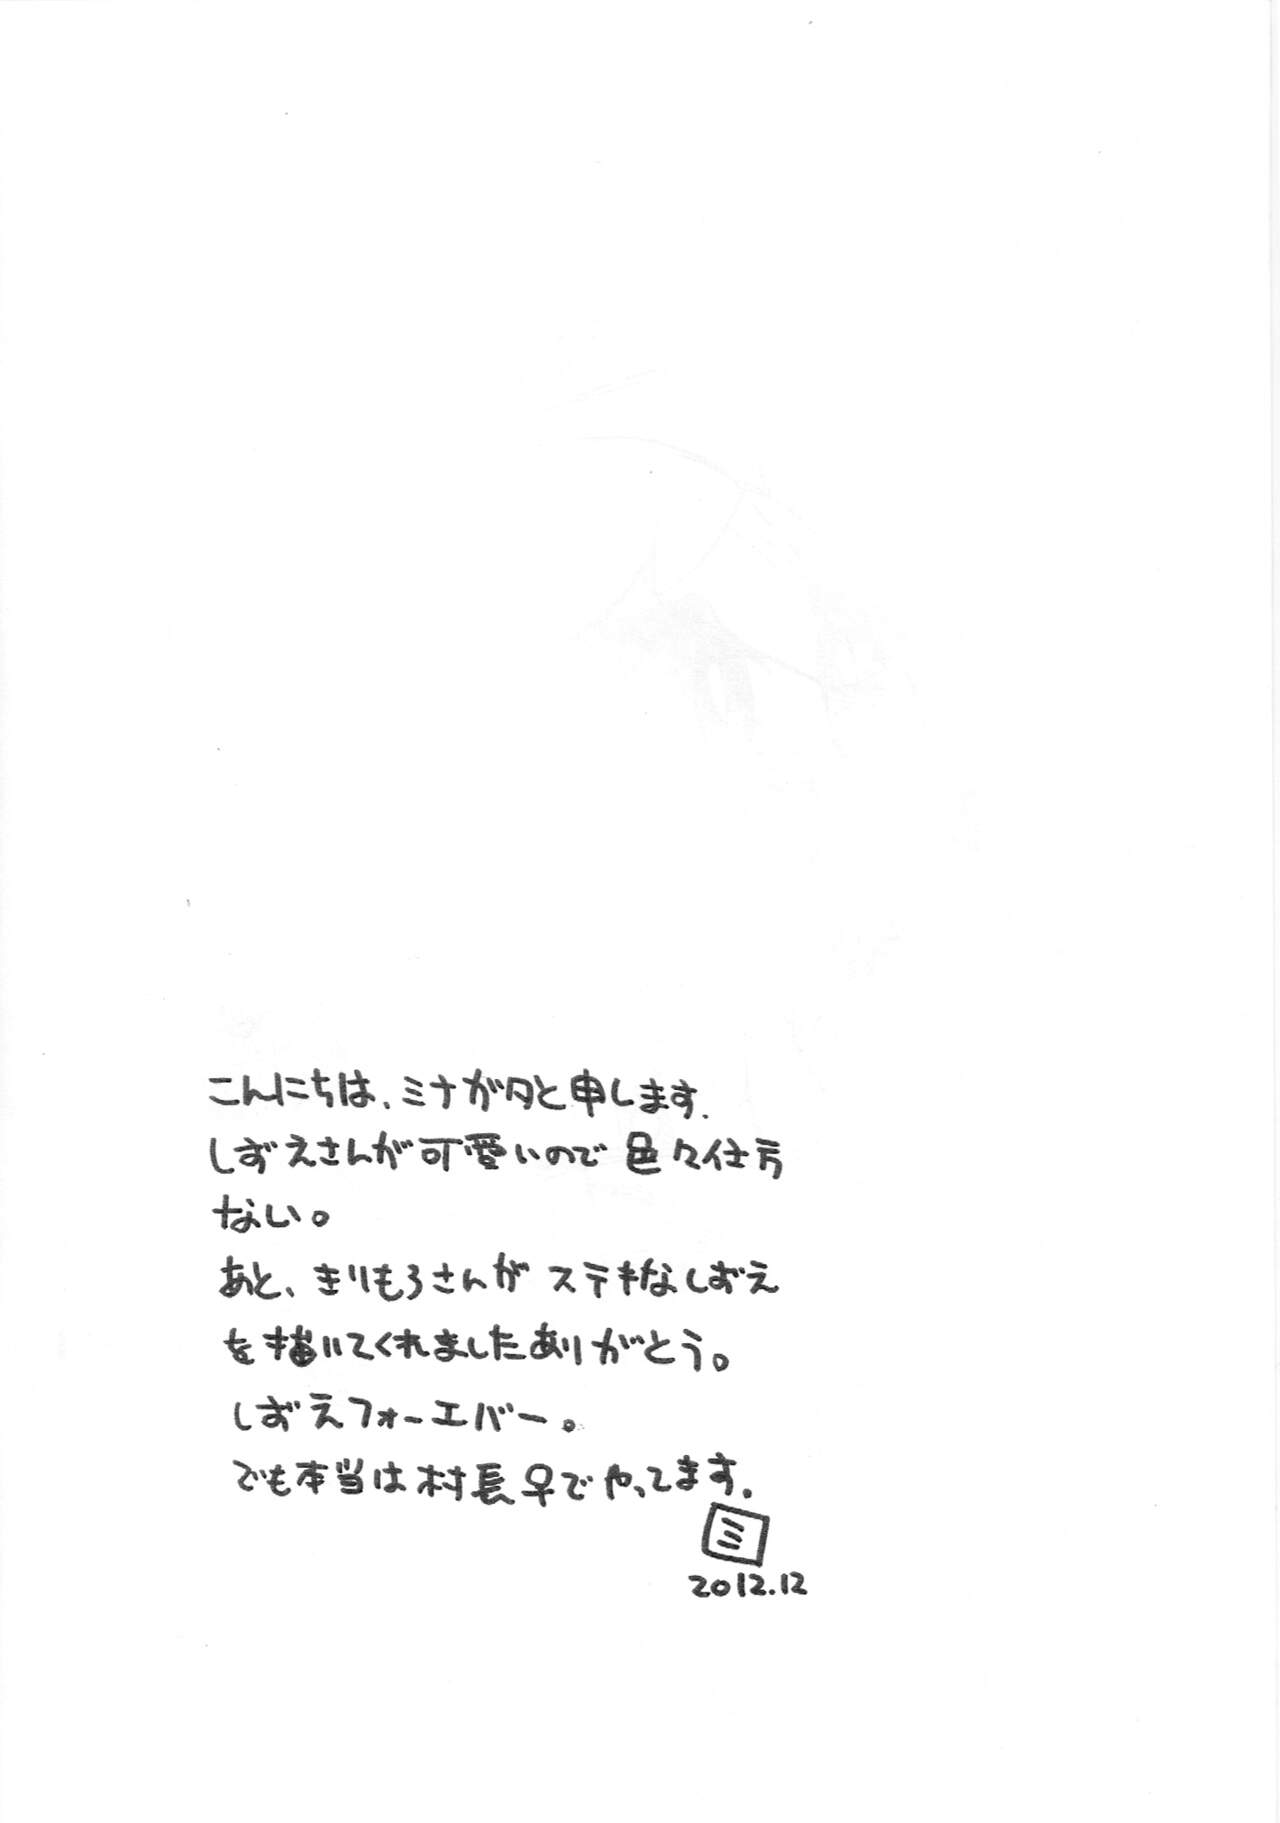 こんにちは、ミナがタと申します.
しずえさんが可愛いので色々仕方
ない。
あと、きりもろさんがステキなしずえ
を描いてくれましたありがとう。
しずえフォーエバー。
でも本当は村長♀でやってます.
ミ
2012.12